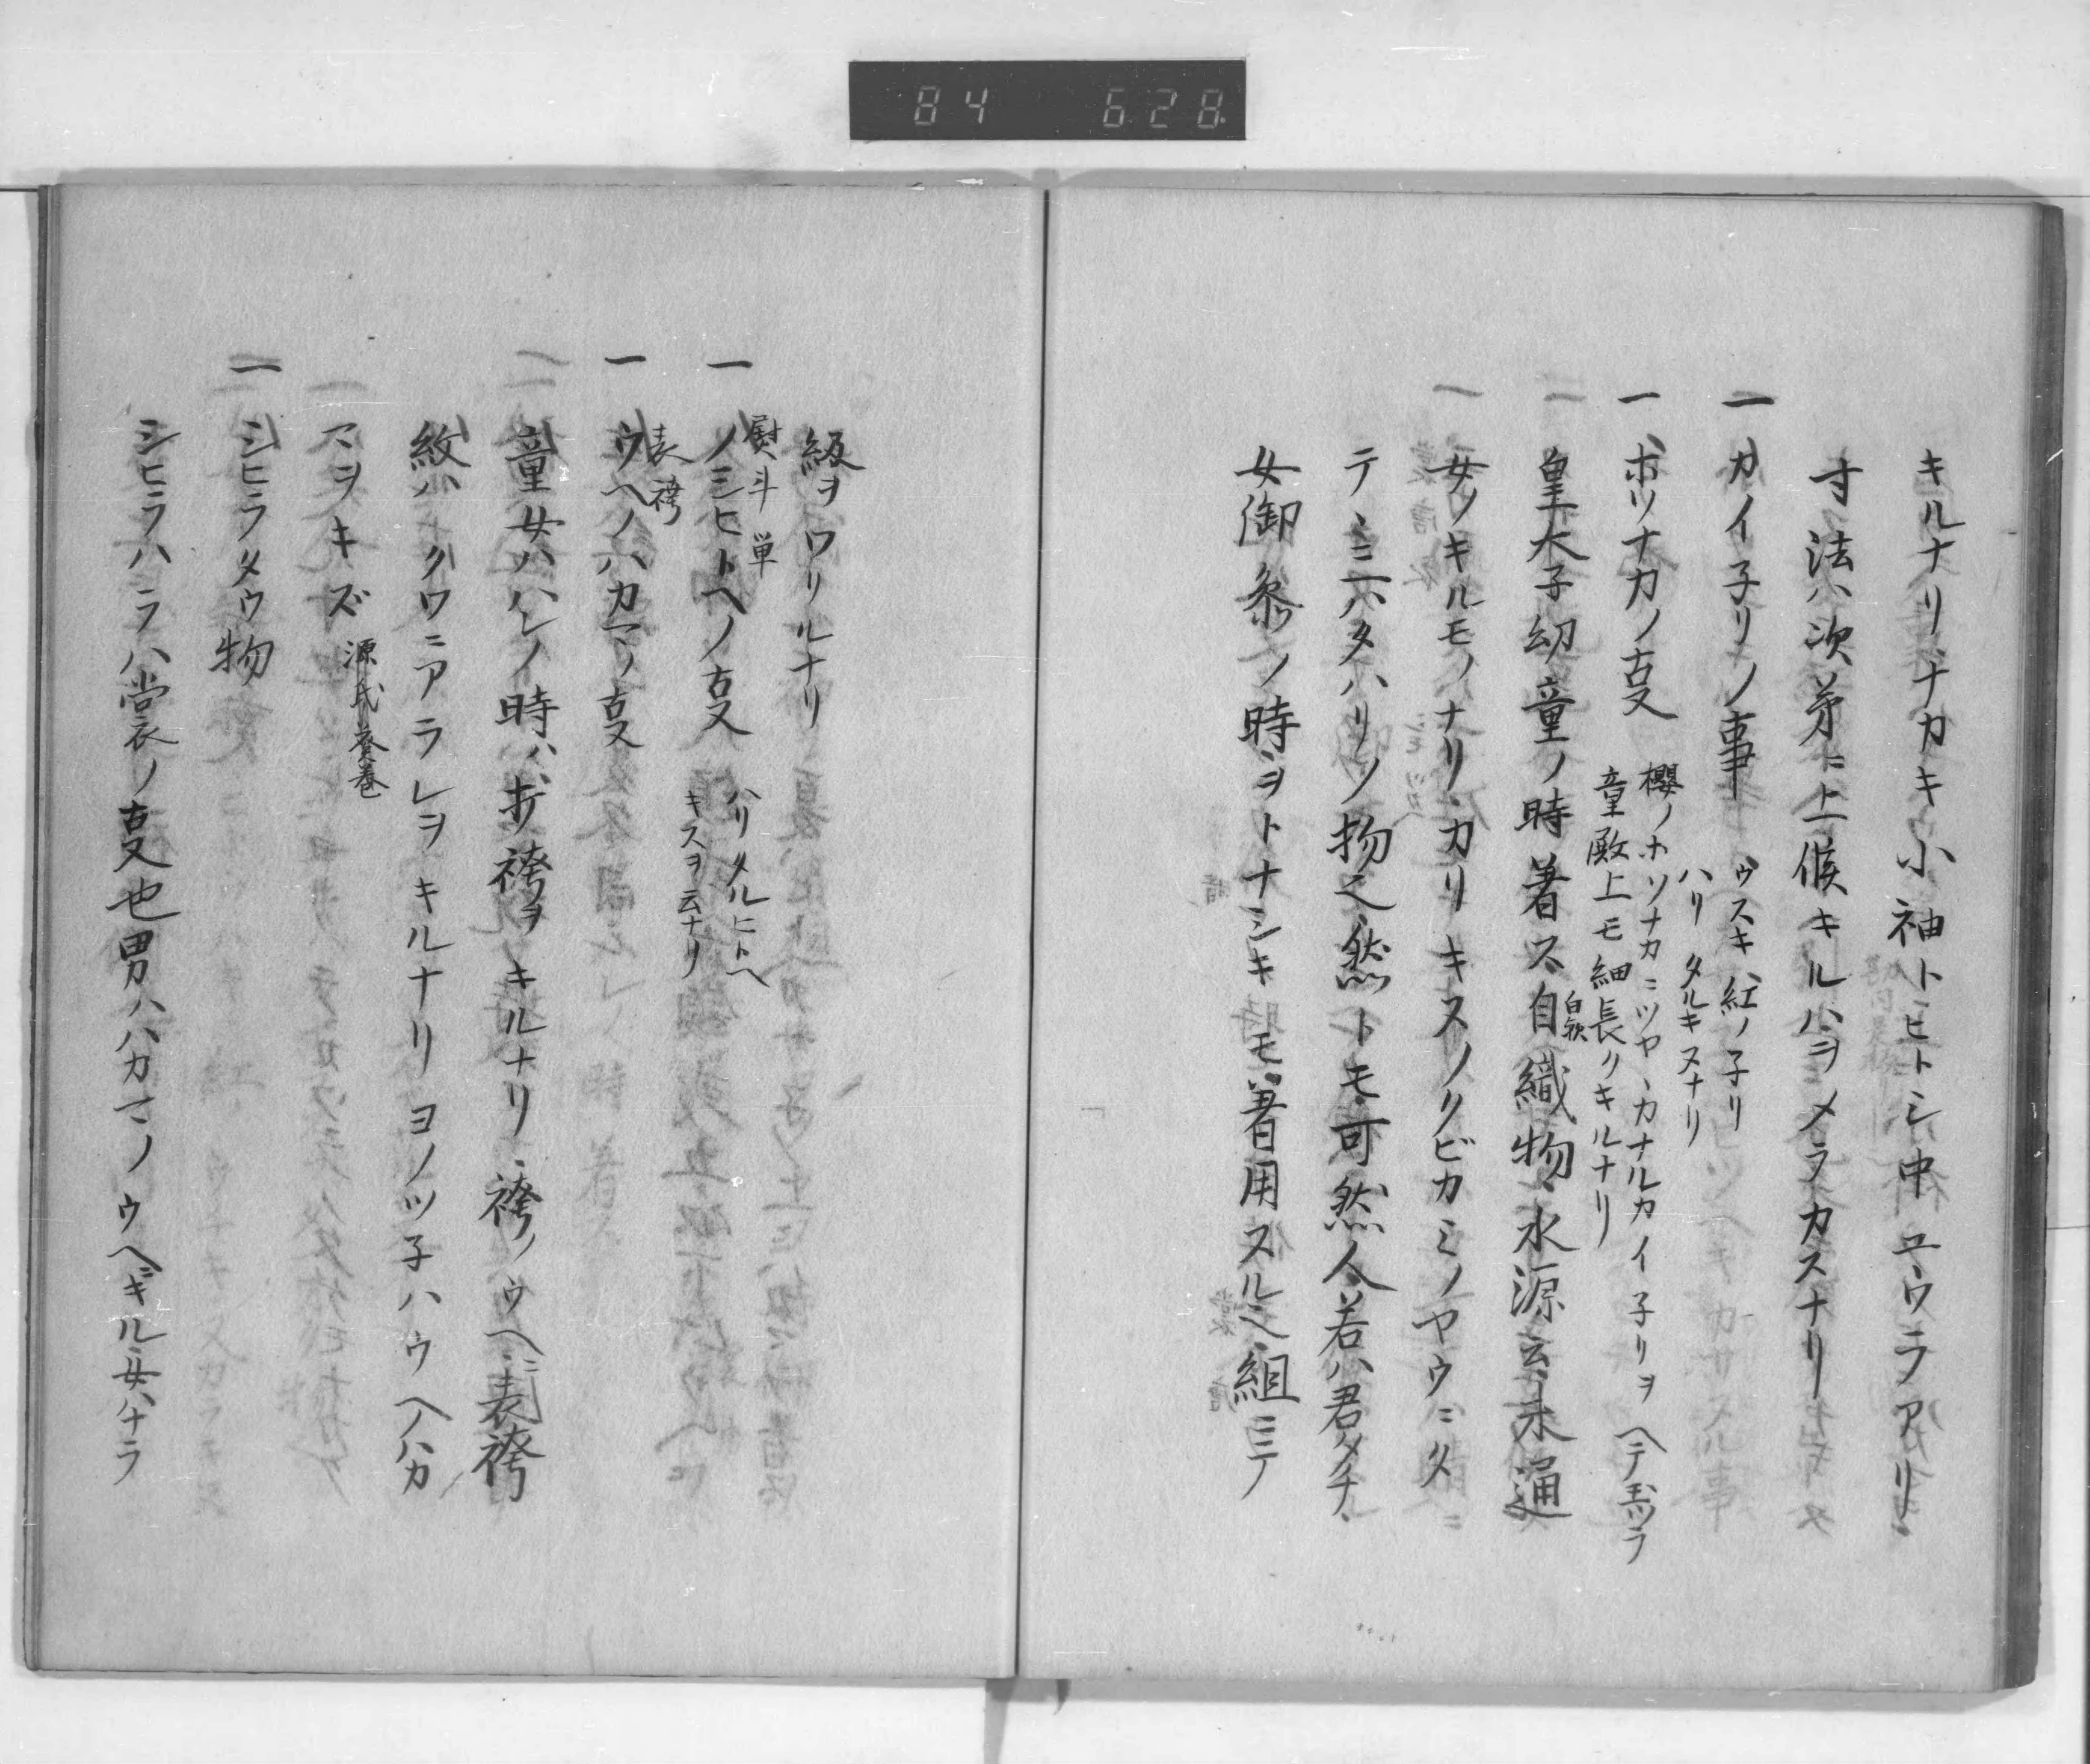 84 628
キルナリ、ナカキ小袖トヒトシ中ユウラアリ、
寸法ハ次第ニ上﨟キルハヲメラカスナリ
一カイ子リノ事
ウスキ紅ノ子リ
ハリタルキヌナリ
一ホソナカノ叓
櫻ノホソナカニツヤヽカナルカイ子リヲヘテ
童殿上モ細長クキルナリ
皇太子幼童ノ時著ス、白織物、水源云、未通
女ノキルモノナリ、カリキヌノクビカミノヤウニタ
テヽ三ハタハリノ物也、然トモ可然人若ハ君タチ、
女御参ノ時ヲトナシキモ著用スル也、組ミテ
級ヲワリルナリ
熨斗単
一ノシヒトヘノ叓
ハリタルヒトヘ
キヌヲ云ナリ
表袴
一ウヘノハカマノ叓
童女ハハレノ時ハ、打袴ヲキルナリ、袴ノウヘニ表袴
紋ハクワニアラレヲキルナリヨノツ子ハウヘノハカ
マヲキズ
源氏葵巻
一シヒラタウ物
シヒラハラハ裳ノ叓也男ハハカマノウヘニキル女ハナラ